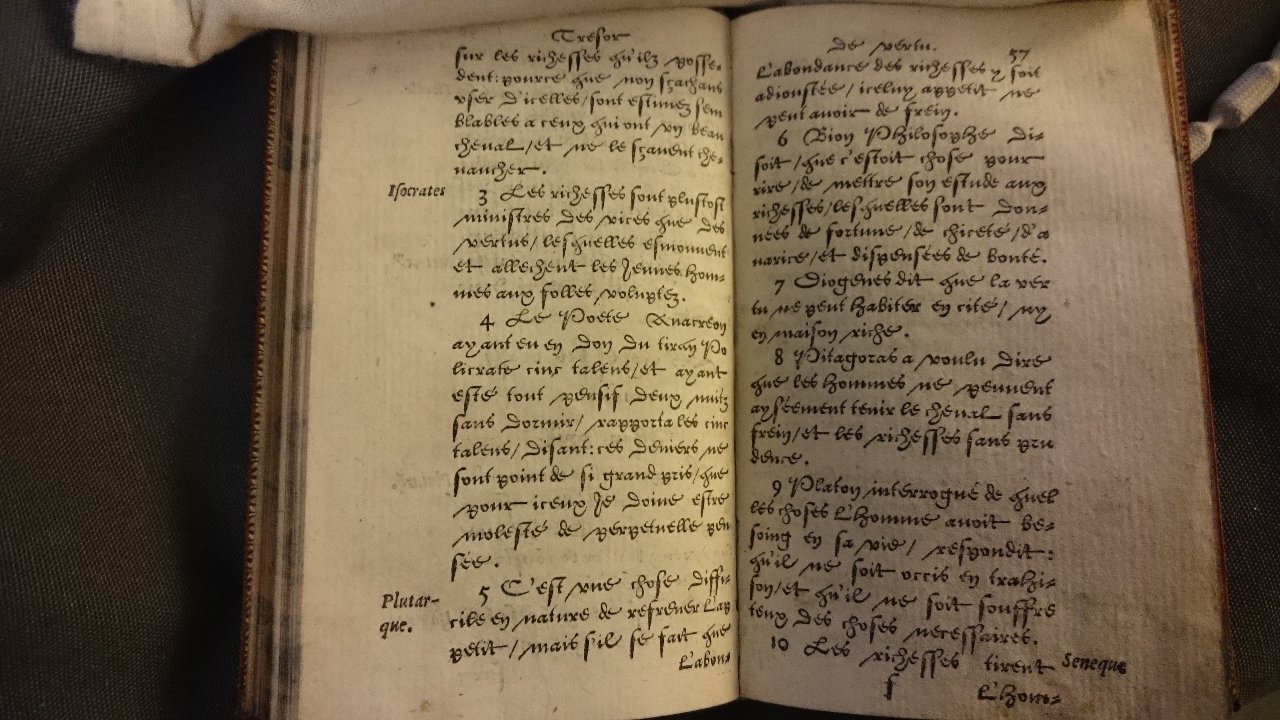 Tresor
sur les richesses qu'ilz posse-
dent: pource que non sçachans
vser d'icelles/sont estimez sem
blables a ceux qui ont vn beau
cheual/et ne le sçauent che-
uaucher.
Isocrates
3 Les richesses sont plustost
ministres des vices que des
vertus/lesquelles esmouuent
et allechent les Jeunes hom-
mes aux folles voluptez.
4 Le Poëte Anacreon
ayant eu en don du tiran Po
licrate cinc talens/et ayant
esté tout pensif deux nuitz
sans dormir/ rapporta les cinc
talens/disant: ces deniers ne
sont point de si grand pris/que
pour iceux Je doiue estre
molesté de perpetuelle pen
sée.
Plutar-
que.
5 C'est vne chose diffi-
cile en nature de refrener l'ap
petit/mais s'il se fait que
L'abon-
de vertu.
57
L'abondance des richesses y soit
adioustée/iceluy appetit ne
peut auoir de frein.
6 Bion Philosophe di-
soit/que c'estoit chose pour
rire/de mettre son estude aux
richesses/lesquelles sont don-
nées de fortune/de chiceté/d'a
uarice/et dispensées de bonté.
7 Diogenes dit que la ver
tu ne peut habiter en cité/ ny
en maison riche.
8 Pitagoras a voulu dire
que les hommes ne peuuent
ayséement tenir le cheual sans
frein/et les richesses sans pru
dence.
9 Platon interrogué de quel
les choses L'homme auoit be-
soing en sa vie/ respondit:
qu'il ne soit occis en trahi-
son/et qu'il ne soit souffre
teux des choses necessaires.
10 Les richesses tirent
Seneque
f
L'hom-